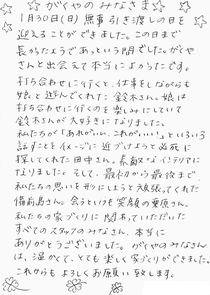 がくやのみなさま
1月30日(日)無事引き渡しの日を
迎えることができました。この日まで
長かったようであっという間でした。がくや
さんと出会えて本当によかったです。
打ち合わせに行くと、仕事をしながらも
娘と遊んでくれた鈴木さん。娘は
打ち合わせに行くのを楽しみにしていて
鈴木さんが大好きになりました。
私たちが「あれがいい、これがいい」といろいろ
話すことをイメージに近づけようと必死に
探してくれた田中さん。素敵なインテリアに
なりました。そして、最初から最後まで
私たちの思いを形にしようと頑張ってくれた
備前島さん。会うといつも笑顔の栗原さん。
私たちの家づくりに関わっていただいた
すべてのスタッフのみなさん、本当に
ありがとうございました。がくやのみなさん
は、温かくて、とても楽しく家づくりができました。
これからもよろしくお願い致します。